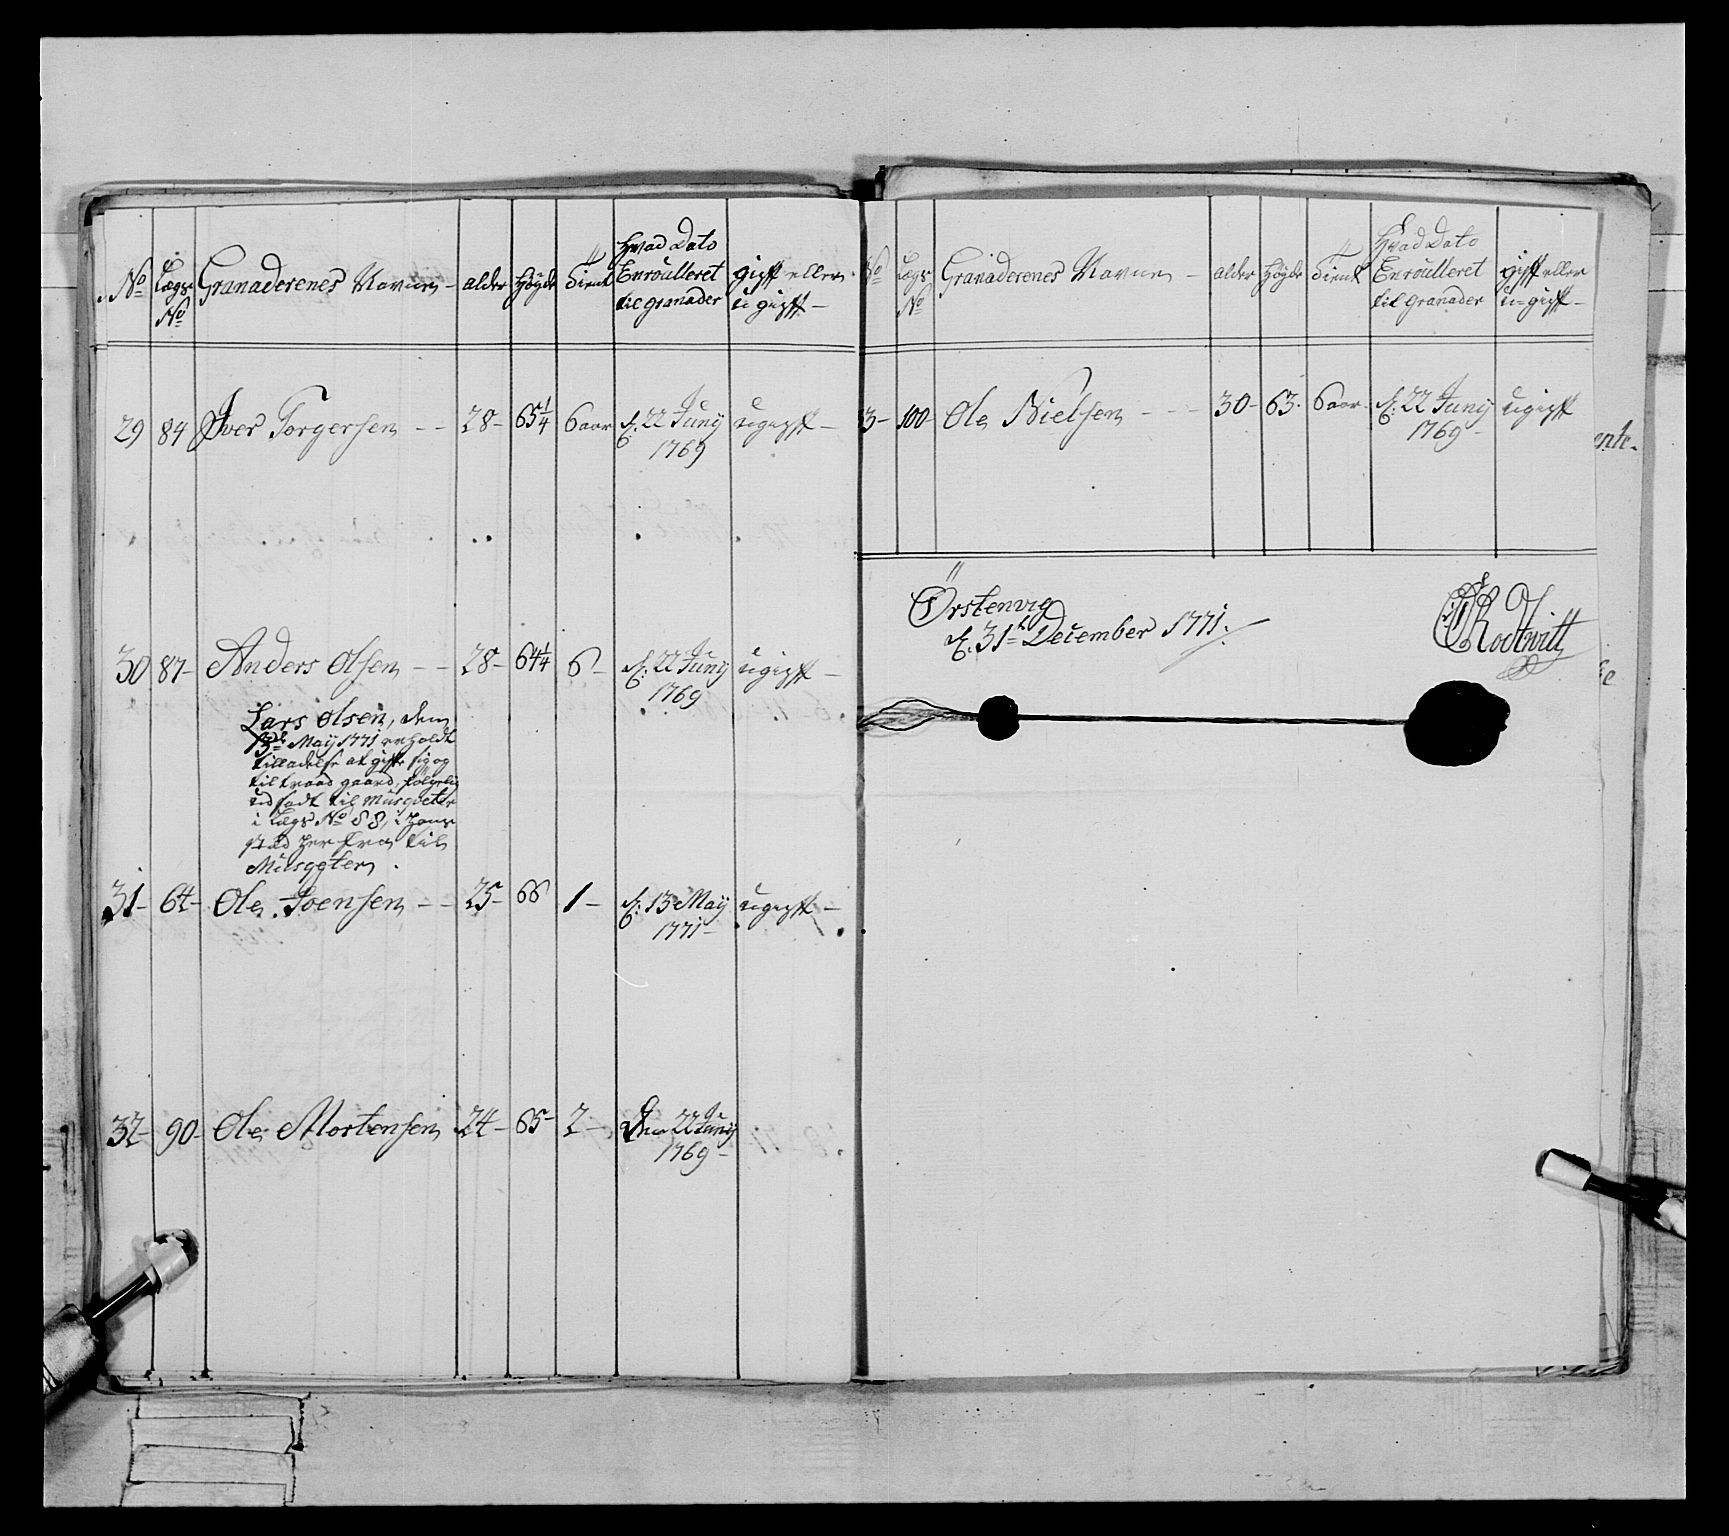 No
Lægs No
Granaderenes Navne
alder
Høyde
Tient
Hvad Dato Enroulleret til granader
gift eller ugift
29 84 Iver Torgersen 28 65 1/4 6 aar d: 22 Juny 1769 ugift
30 87 Anders Olsen 28 64 1/4 6 d: 22 Juny 1769 ugift
Lars Olsen, dem
13de May 1771 erholdt
tilladelse at gifte sig og
tiltraad gaard, følgelig
ud sadt til Musqveter
i Lægs No 88, i
her fra til
Musqveter
31 64 Ole Joensen 25 66 1 d: 13 May 1771 ugift
32 90 Ole Mortensen 24 65 2 Den 22 Juny 1769
No
Lægs No
Granaderenes Navne
alder
Høyde
Tient
Hvad Dato Enroulleret til granader
gift eller u-gift
3 100 Ole Nielsen 30 63 6 aar d: 22 Juny 1769 ugift
Örstenvig
d. 31te December 1771.
Rodtwitt